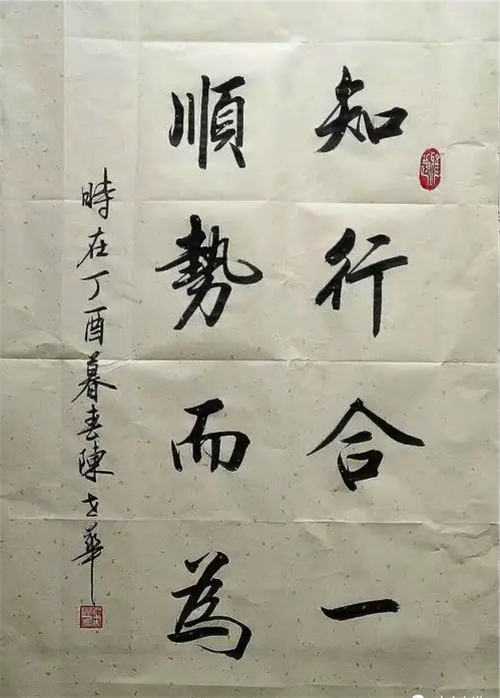 知行合一
順勢而為
時在丁酉暮春陳士華